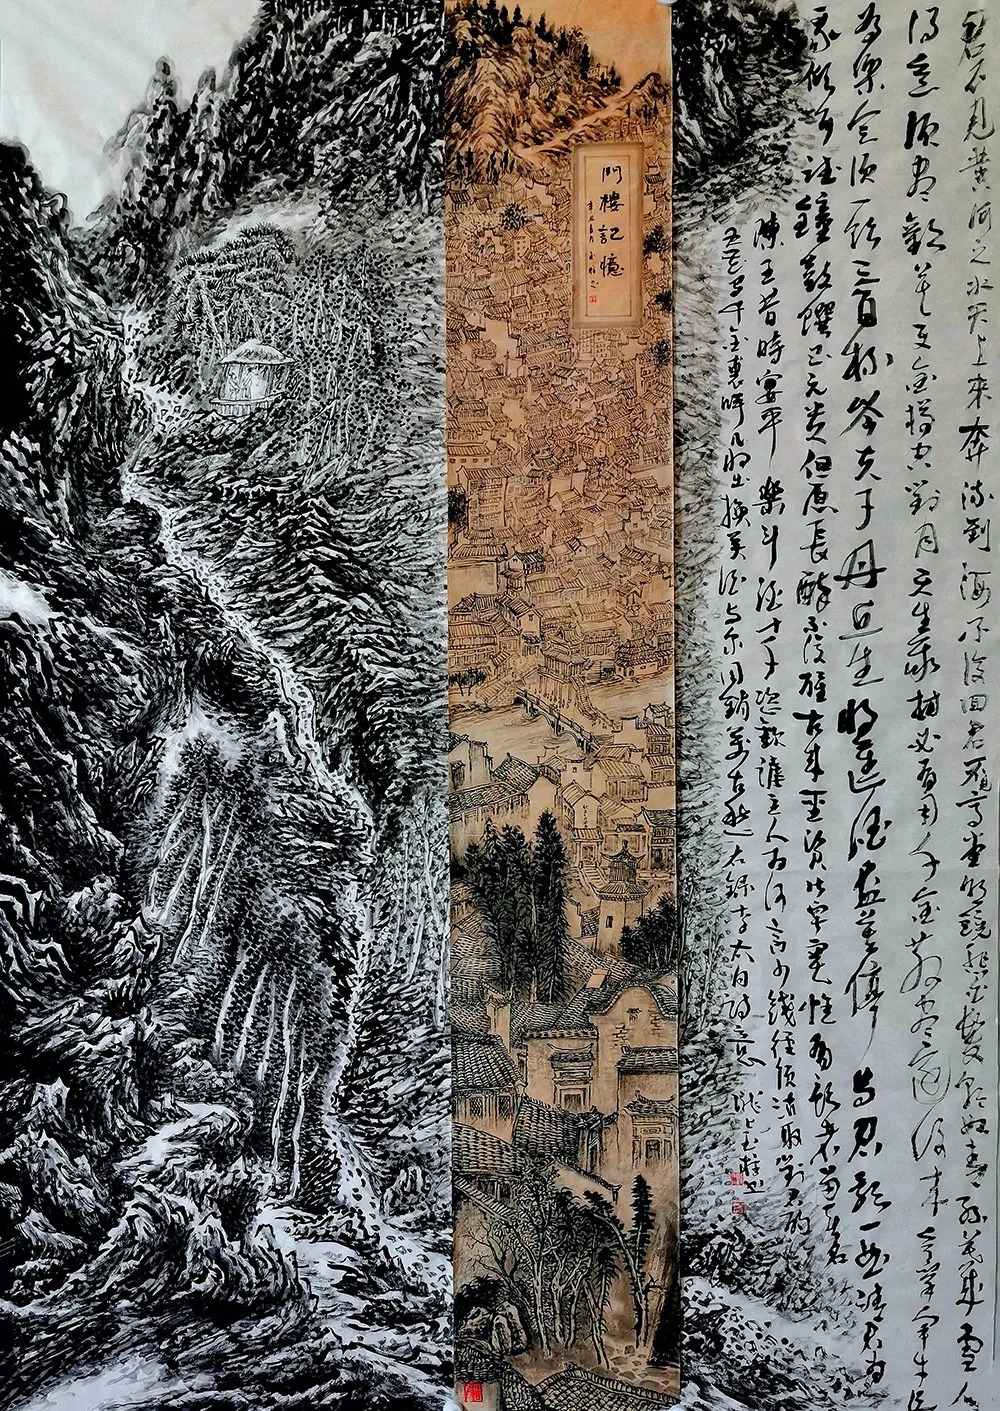 君不見黄河之水天上來奔流到海不復回君不見高堂明鏡悲白髮朝如青絲暮成雪人
得意須盡歡莫使金樽空對月天生我材必有用千金散盡還復來烹羊宰牛且
為樂會須一飲三百杯岑夫子丹丘生將進酒君莫停與君歌一曲請君為
我傾耳聽鐘鼓饌玉不足貴但願長醉不復醒古來聖賢皆寂寞惟有飲者留其名
陳王昔時宴平樂斗酒十千恣歡謔主人為何言少錢徑須沽取對君酌
五花馬千金裘呼兒將出換美酒與爾同銷萬古愁右錄李太白詩意
門樓記憶